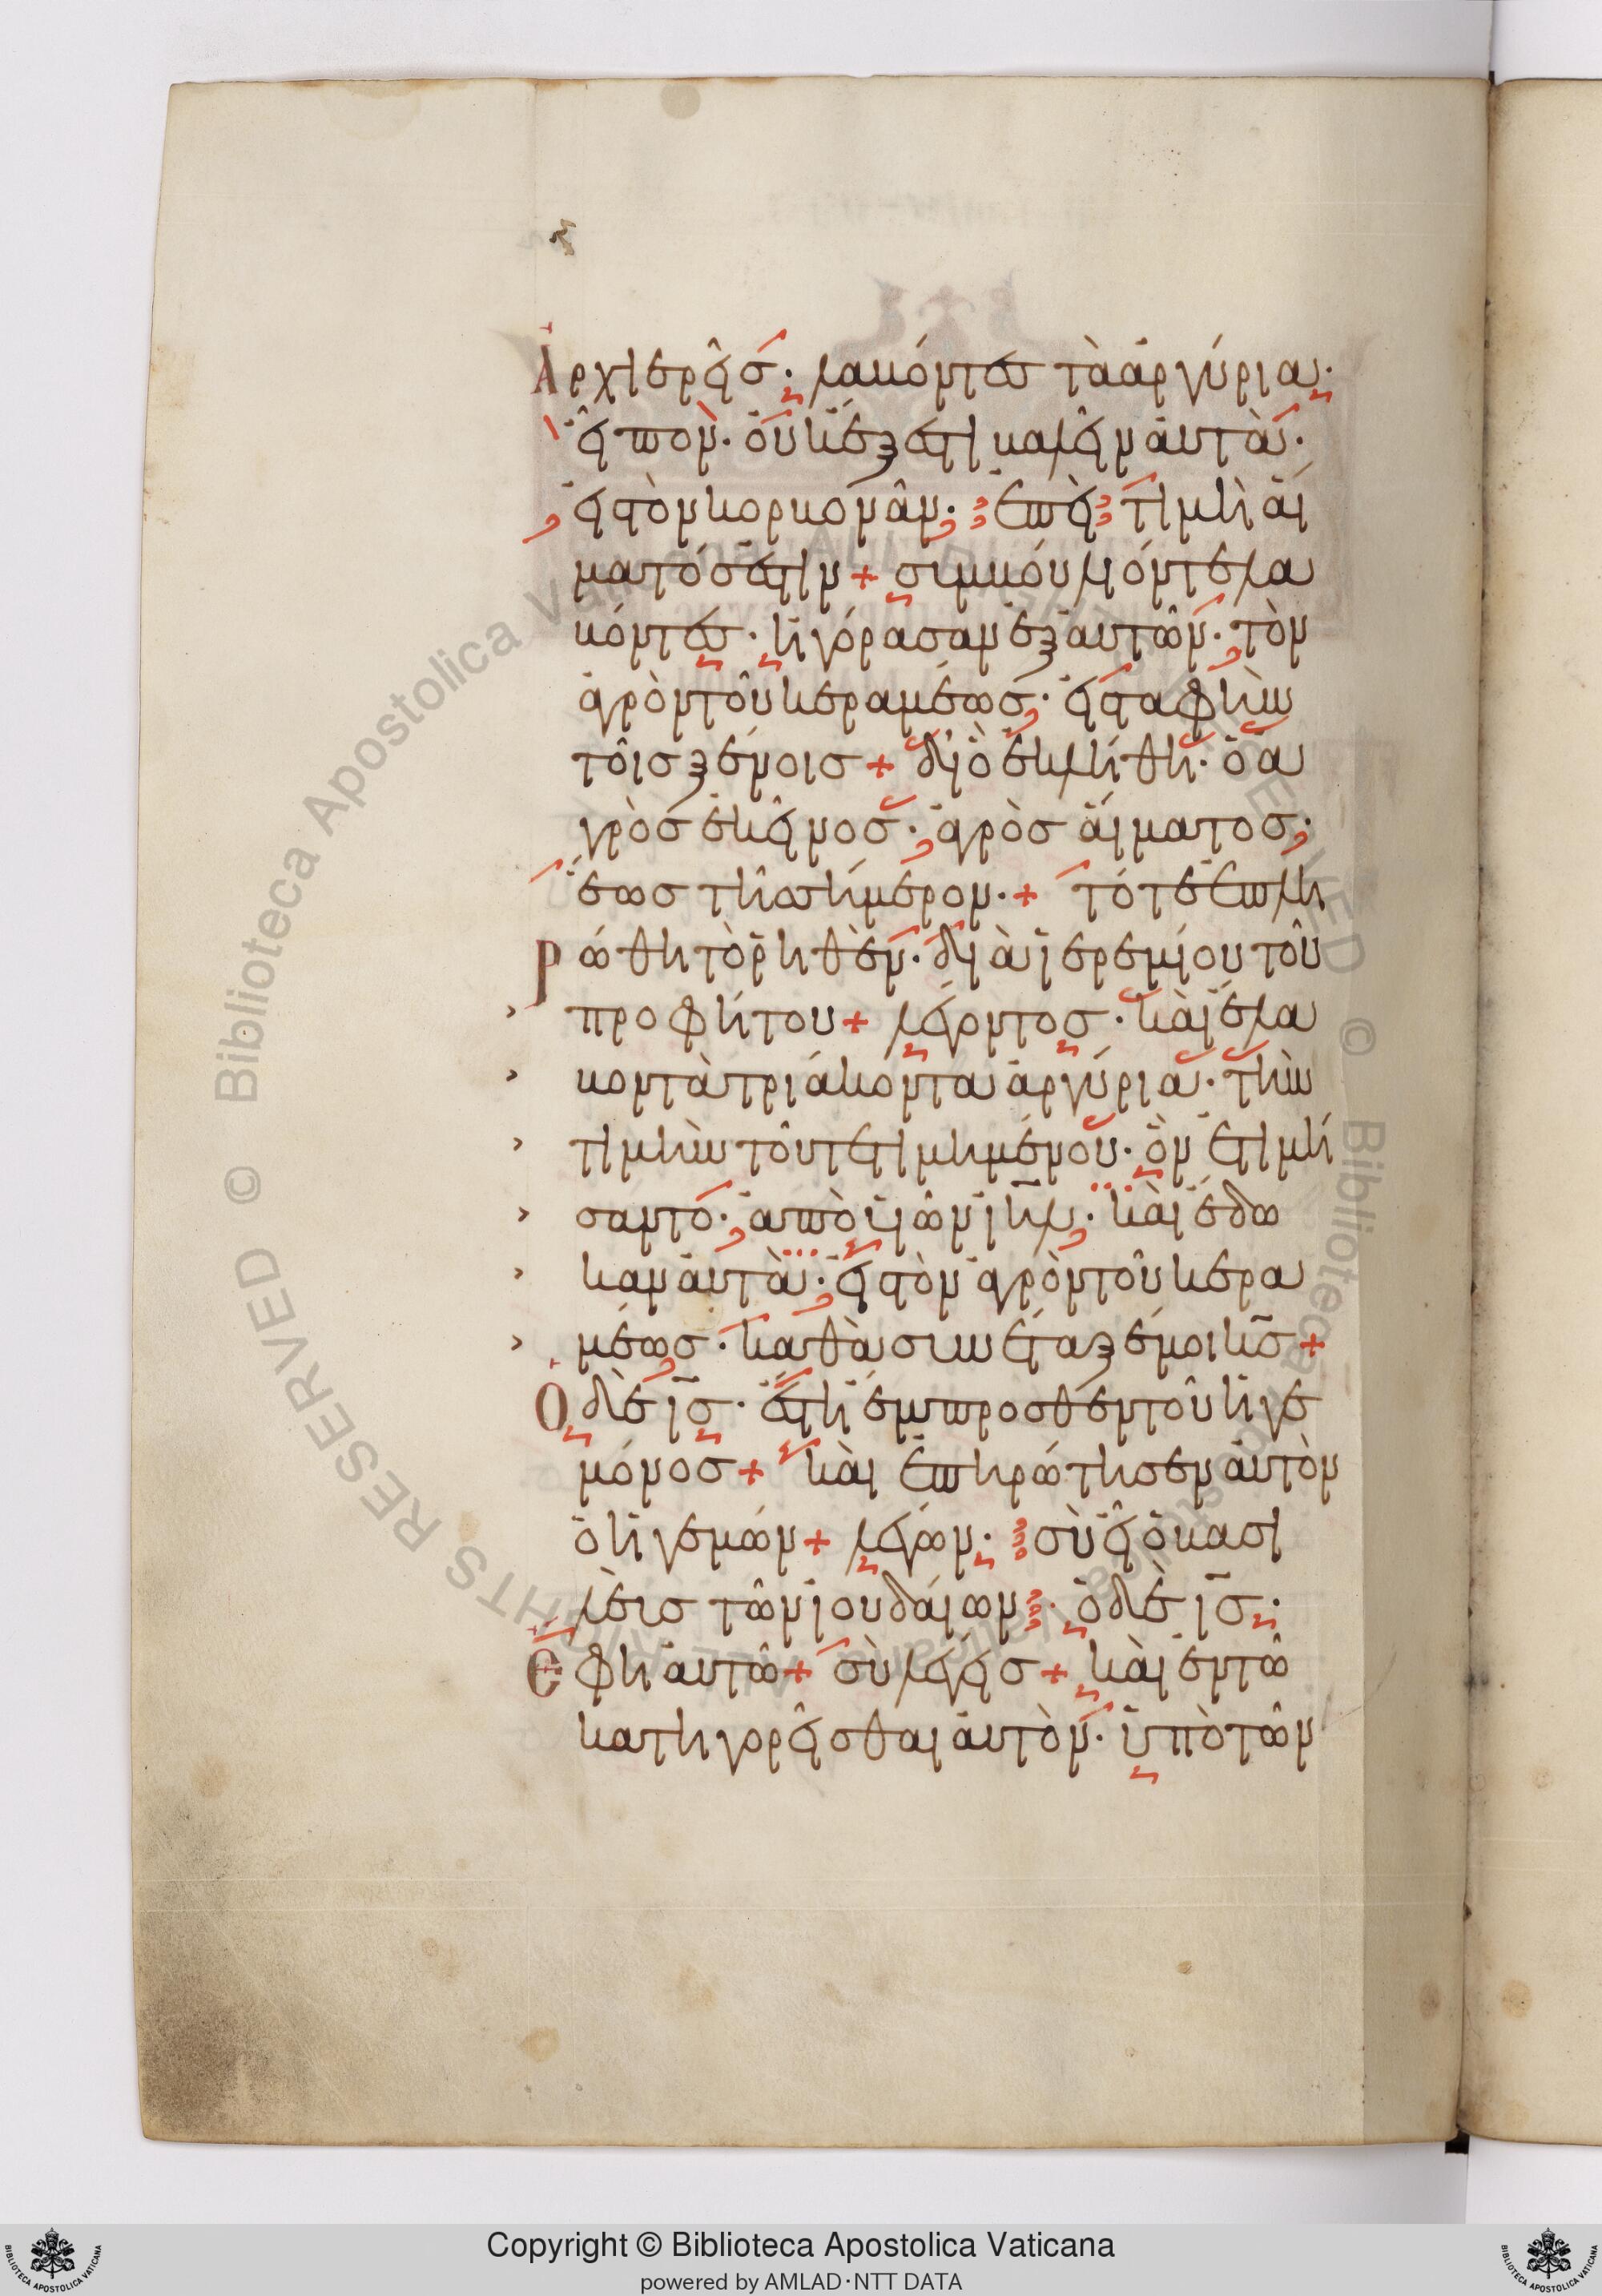 Ἀρχιερεῖς· λαβόντες τὰ ἀργύρια·
εἶπον· οὐκ ἔξεστι βαλεῖν αὐτὰ·
εἰς τὸν κορβονᾶν· ἐπεὶ τιμὴ αἵ
ματός ἐστιν + συμβούλιόν τε λα
βόντες· ἠγόρασαν ἐξ αὐτῶν· τὸν
ἀγρὸν τοῦ κεραμέως· εἰς ταφὴν
τοῖς ξένοις + διὸ ἐκλήθη· ὁ ἀ
γρὸς ἐκεῖνος· ἀγρὸς αἵματος·
ἕως τῆς σήμερον· + τότε ἐπλη
ρώθη τὸ ῥηθὲν· διὰ ἰερεμίου τοῦ
προφήτου + λέγοντος· καὶ ἔλα
βον τὰ τριάκοντα ἀργύρια· τὴν
τιμὴν τοῦ τετιμημένου· ὃν ἐτιμή
σαντο· ἀπὸ υἱῶν ιηλ· καὶ ἔδω
καν αὐτὰ· εἰς τὸν ἀγρὸν τοῦ κερα
μέως· καθὰ συνέταξέ μοι κς +
Ὁ δὲ ις· ἔστη ἔμπροσθεν τοῦ ἡγε
μόνος + καὶ ἐπηρώτησεν αὐτὸν
ὁ ἡγεμών + λέγων· σὺ εἶ ὁ βασι
λεὺς τῶν ἰουδαίων· ὁ δὲ ις·
Ἔφη αὐτῶ + σὺ λέγεις + καὶ ἐν τῶ
κατηγορεῖσθαι αὐτὸν· ὑπὸ τῶν
Copyright © Biblioteca Apostolica Vaticana
powered by AMLAD·NTT DATA
© Biblioteca Apostolica Vaticana ALL RIGHTS RESERVED